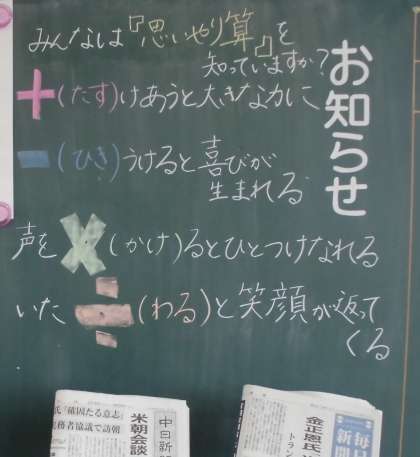 お知らせ
みんなは『思いやり算』を
知っていますか?
+(たす)けあうと大きな力に
-(ひき)うけると喜びが
生まれる
声を×(かけ)るとひとつになれる
いた÷(わる)と笑顔が返って
くる
中日新
米朝会談
氏「確固たる意志」
務者協議で訪朝
毎日
新聞
金正恩氏
トラン